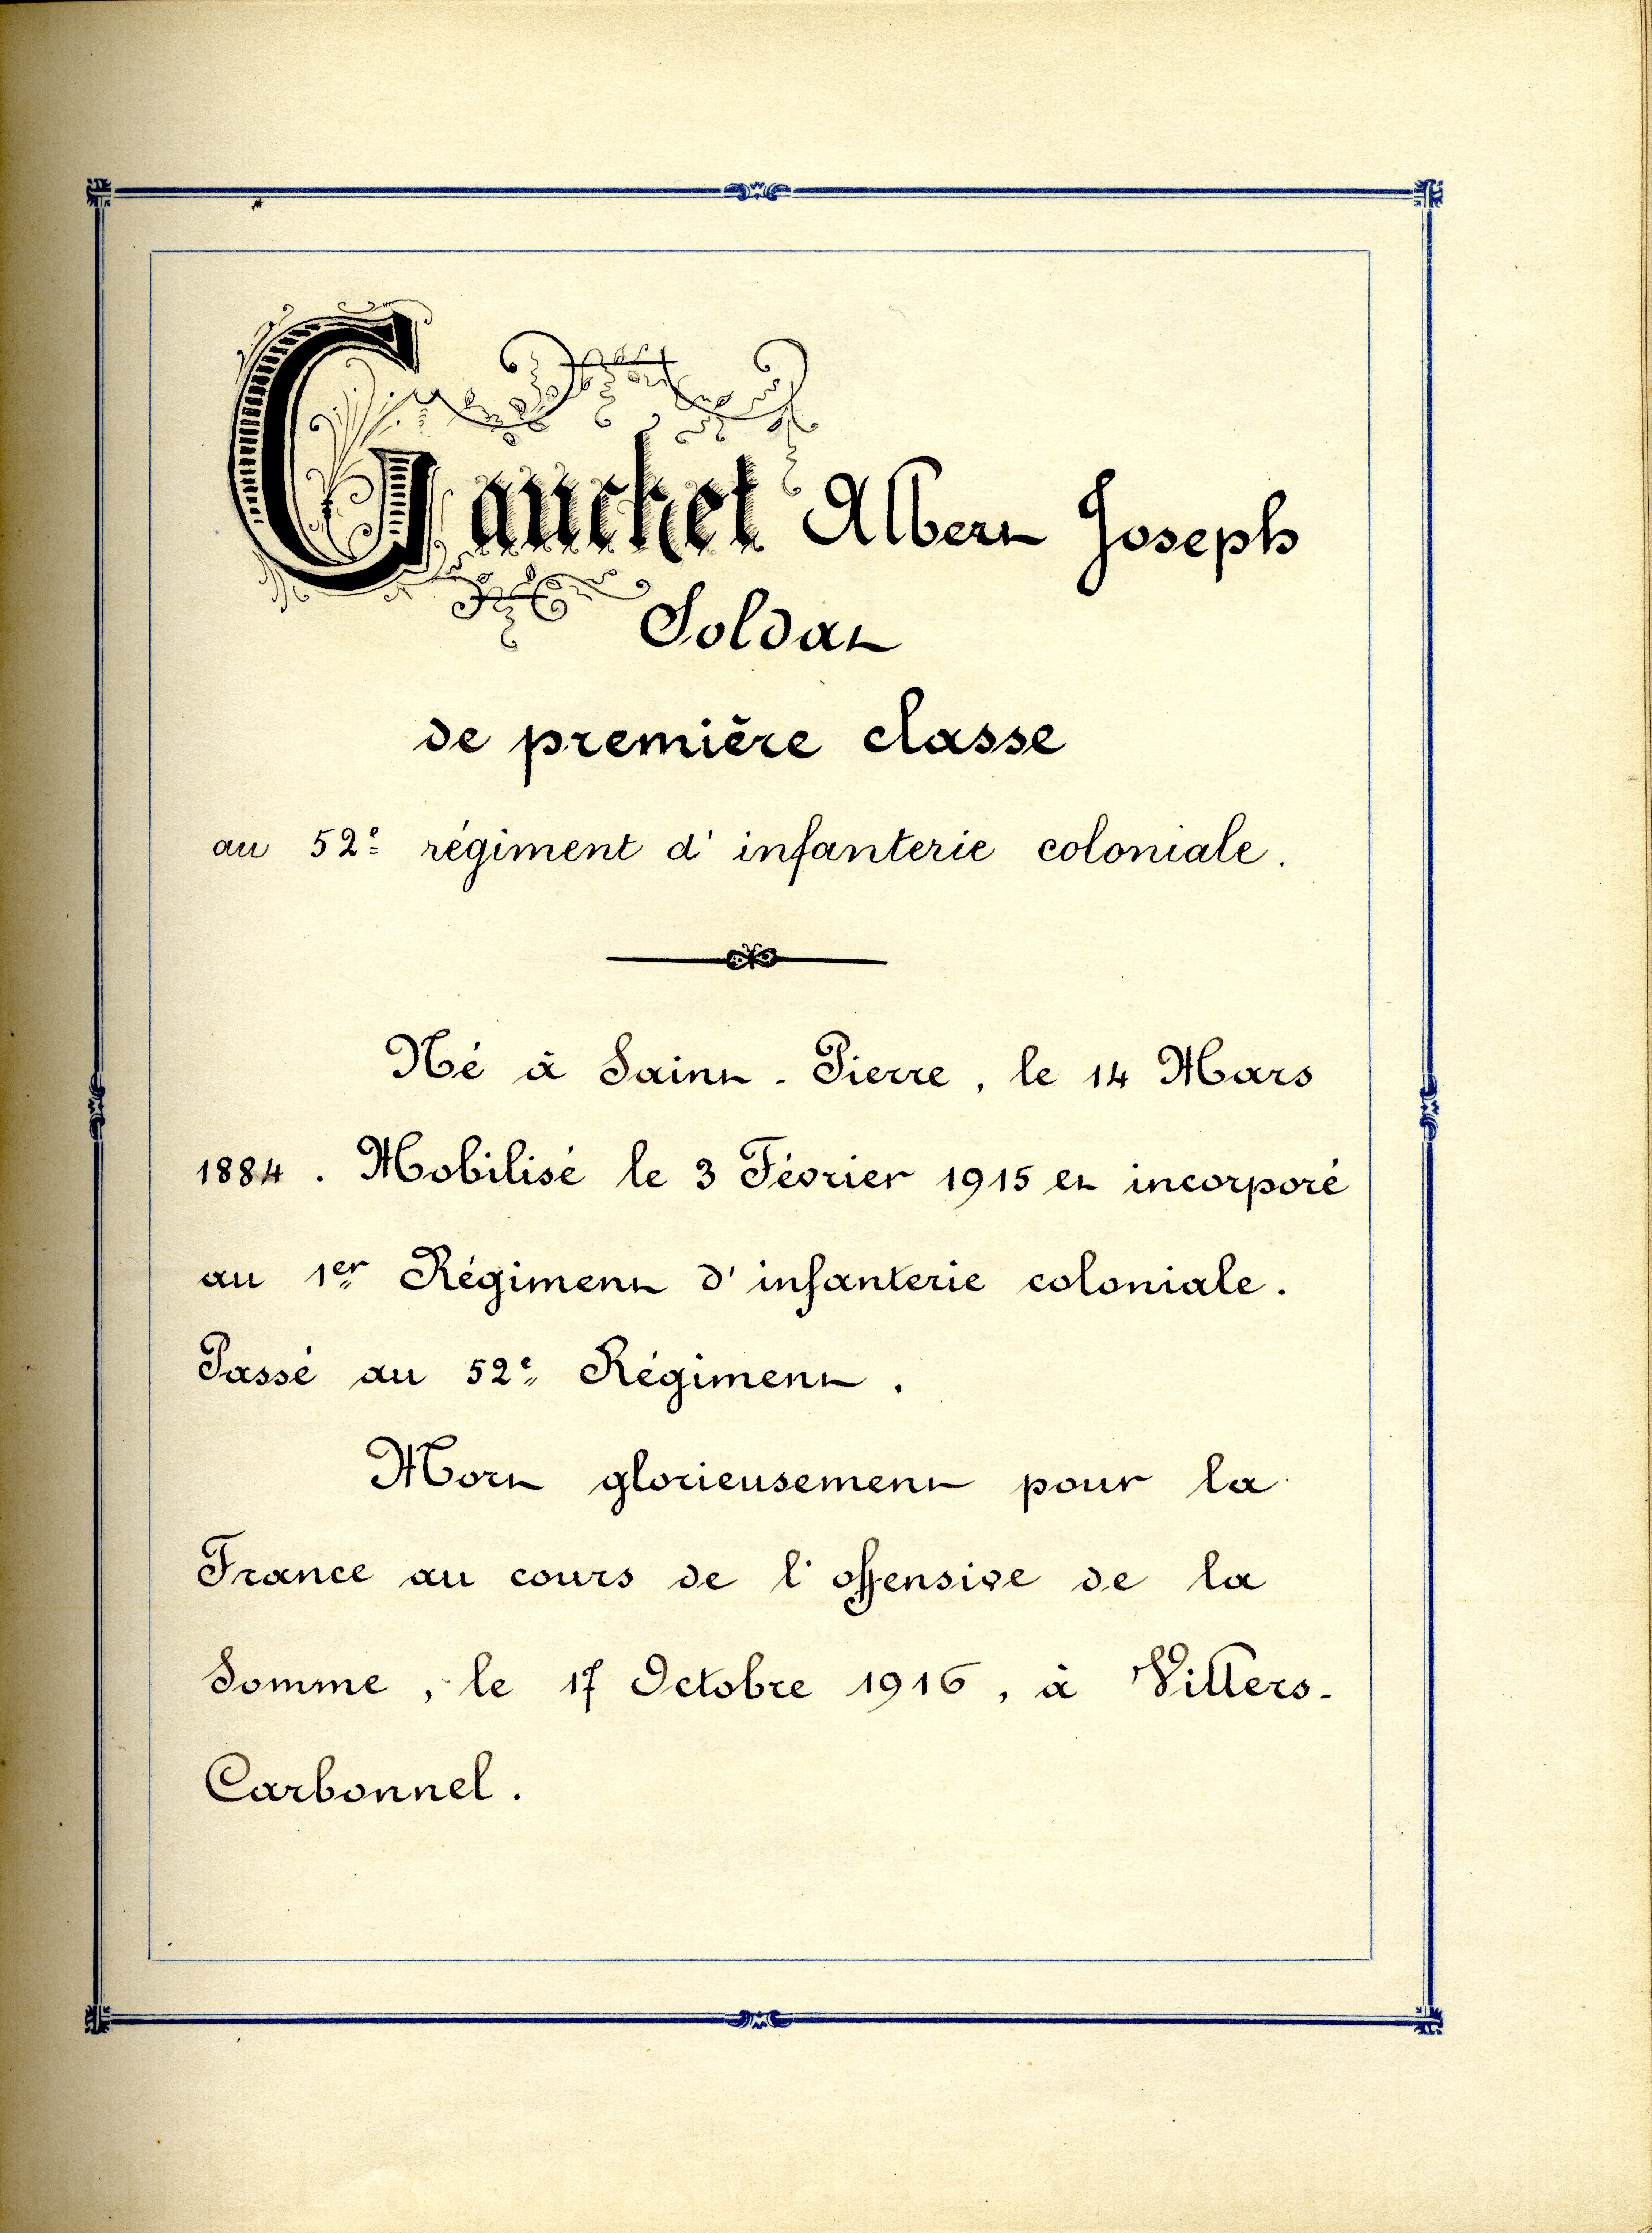 Gauchet Albert Joseph
Soldat
de première classe
au 52e régiment d'infanterie coloniale.
Né à Saint-Pierre, le 14 Mars
1884. Mobilisé le 3 Février 1915 et incorporé
au 1er Régiment d'infanterie coloniale.
Passé au 52e Régiment.
Mort glorieusement pour la
France au cours de l'offensive de la
Somme, le 17 Octobre 1916, à Villers-
Carbonnel.